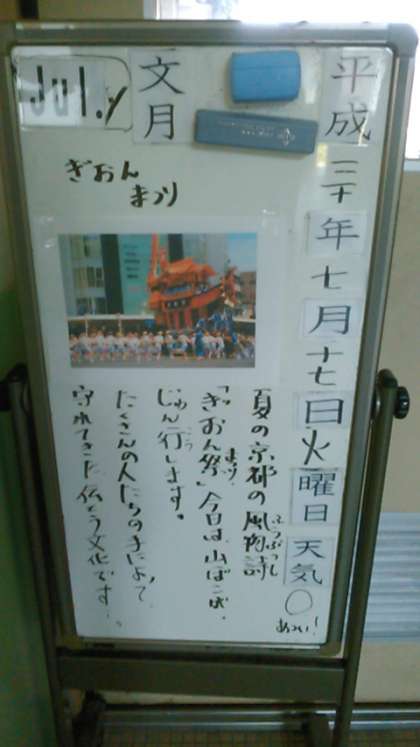 平成三十年七月十七日火曜日 天気○
あつい!
文月
July
ぎおん
まつり
夏の京都の風物詩
ふうぶつし
「ぎおん祭」今日は、山ぼこが、
まつり
じゅん行します。
こう
たくさんの人たちの手によって
守れてきた伝とう文化です。